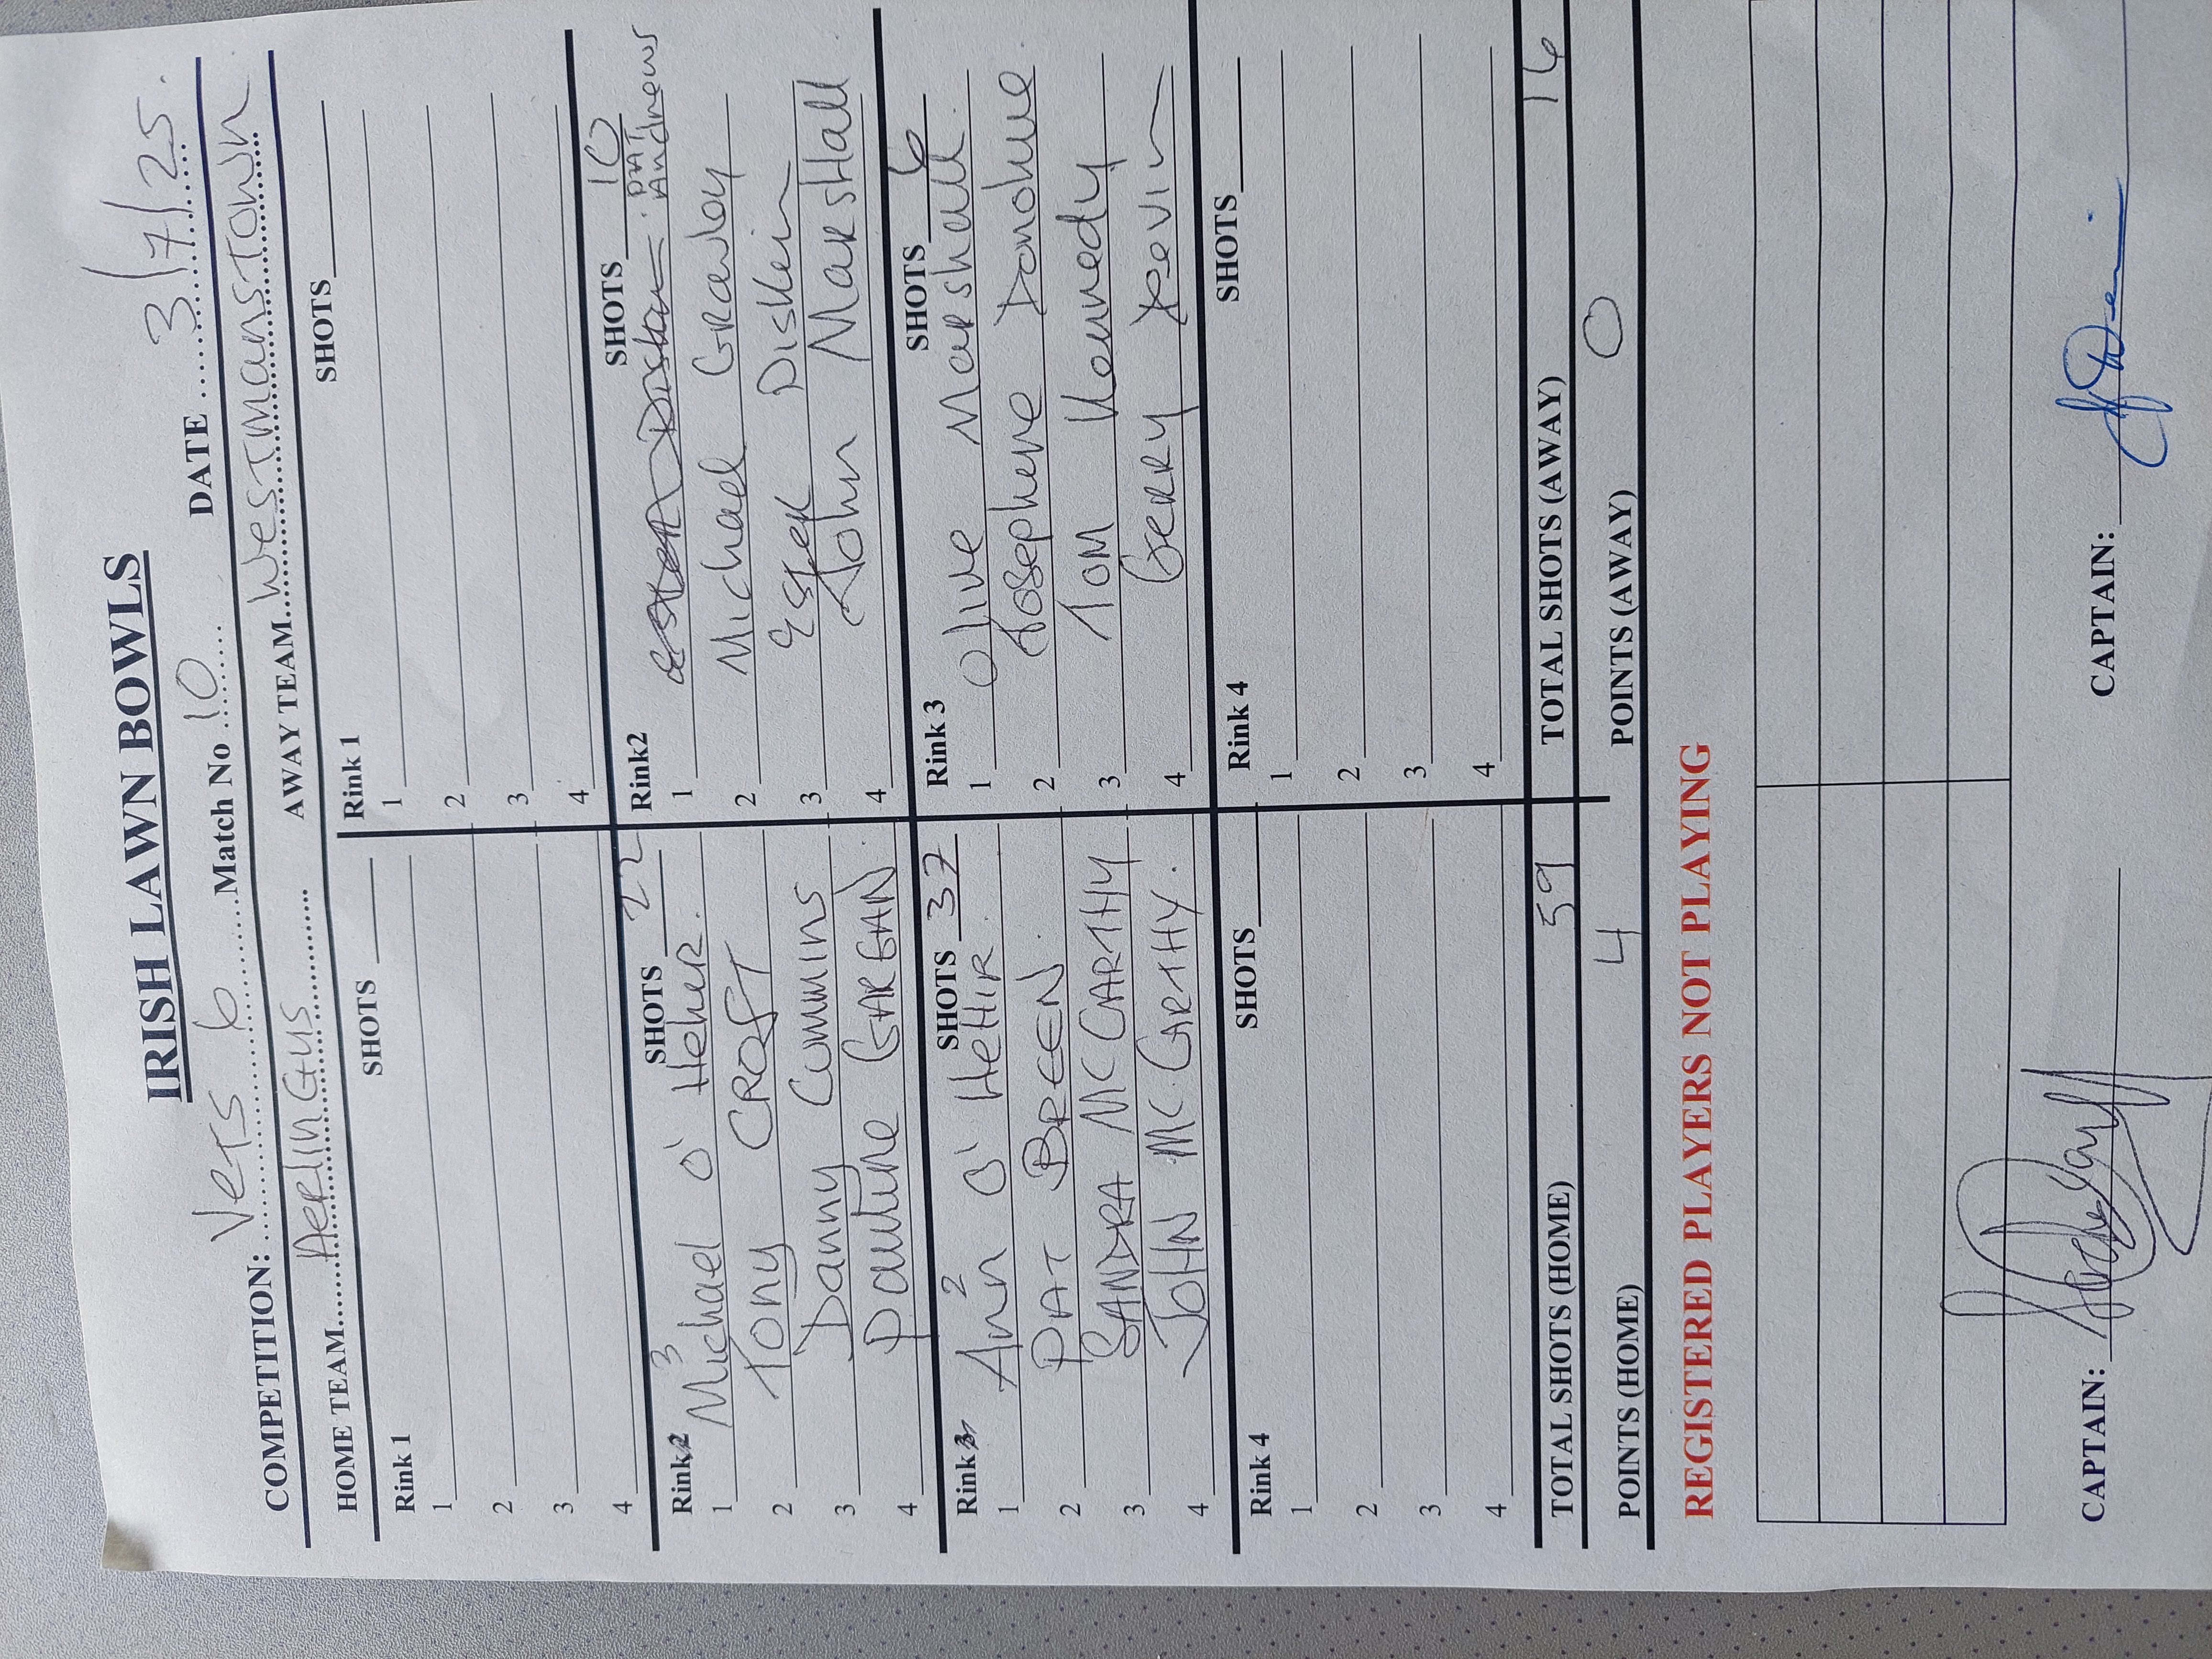 IRISH LAWN BOWLS
COMPETITION: Vets 6 Match No 10 DATE 3/7/25.
HOME TEAM Aer lin Gus AWAY TEAM Westmanstown
Rink 1 SHOTS
1
2
3
4
Rink 1 SHOTS
1
2
3
4
Rink 2 3 SHOTS 22
1 Michael O' Hehir.
2 Tony CROFT
3 Danny Cummins
4 Pauline GARGAN.
Rink2 SHOTS 10
1 Pat Andrews
2 Michael Grawley
3 Ester Diskin
4 John Marshall
Rink 3 2 SHOTS 37
1 Ann O' HeHIR.
2 PAT BREEN.
3 SANDRA MC CARTHY
4 JOHN MC CARTHY.
Rink 3 SHOTS 6
1 Olive Marshall.
2 Josephene Donohue
3 Tom Kennedy
4 Gerry Devin
Rink 4 SHOTS
1
2
3
4
Rink 4 SHOTS
1
2
3
4
TOTAL SHOTS (HOME) 59 TOTAL SHOTS (AWAY) 16
POINTS (HOME) 4 POINTS (AWAY) 0
REGISTERED PLAYERS NOT PLAYING
CAPTAIN: CAPTAIN: